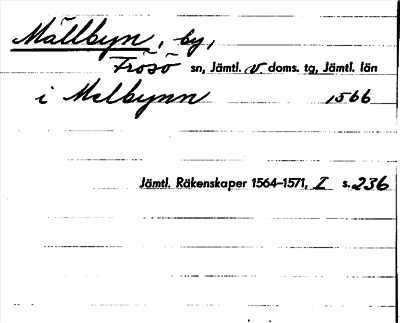 Mällbyn, by,
Frösö sn, Jämtl. v. doms. tg, Jämtl. län
i Melbynn 1566
Jämtl. Räkenskaper 1564–1571, I s. 236